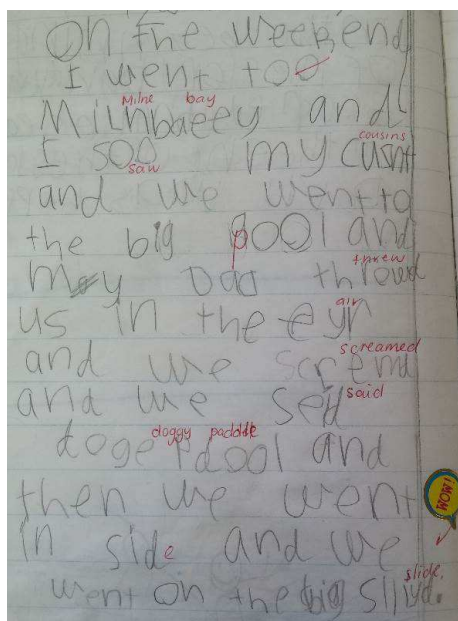 On the weekend
I went too
Milne bay
Milnbaeey and
cousins
I soo my cusnt
saw
and we went to
the big pool and
threw
my Dad throwd
air
us in the eyr
screamed
and we scremd
and we seid said
doggy paddle
doge pdool and
then we went
WOW!
in side and we
slide.
went on the big sliyd.